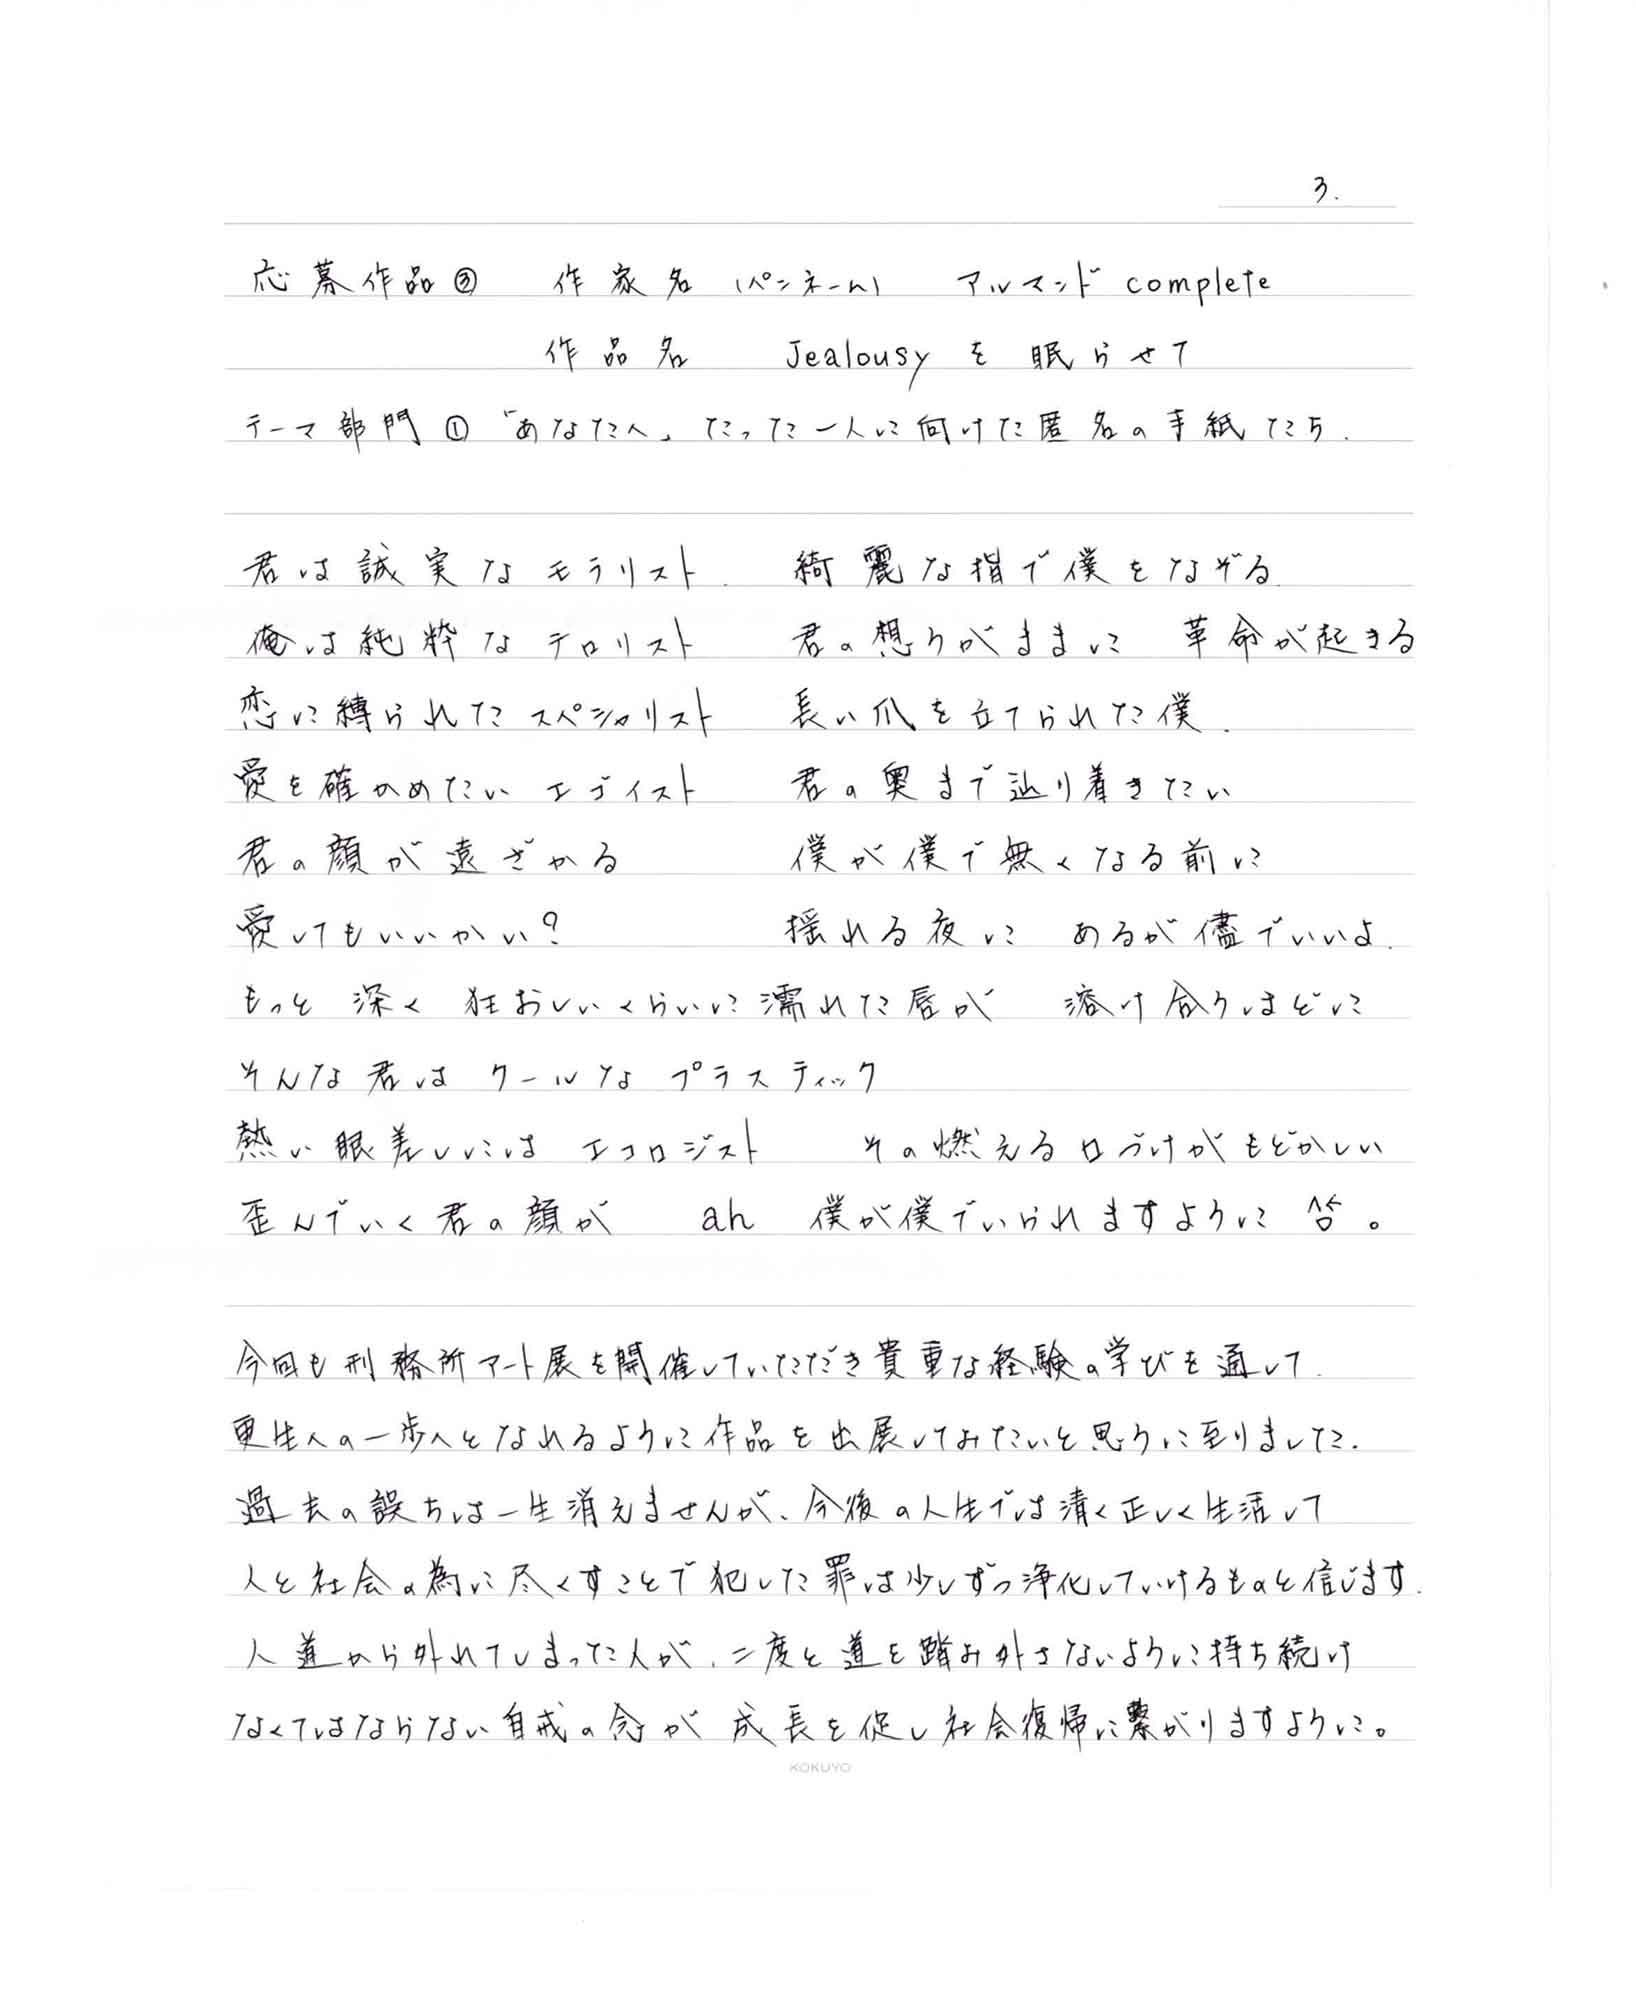 3.
応募作品③ 作家名(ペンネーム) アルマンド complete
作品名 Jealousy を 眠らせて
テーマ部門 ①「あなたへ」たった一人に向けた匿名の手紙たち.
君は誠実なモラリスト. 綺麗な指で僕をなぞる.
俺は純粋なテロリスト 君の想うがままに 革命が起きる
恋に縛られたスペシャリスト 長い爪を立てられた僕.
愛を確かめたいエゴイスト 君の奥まで辿り着きたい
君の顔が遠ざかる 僕が僕で無くなる前に
愛してもいいかい? 揺れる夜に あるが儘でいいよ.
もっと 深く 狂おしいくらいに濡れた唇が 溶け合うほどに
そんな君は クールな プラスティック
熱い眼差しには エコロジスト その燃える口づけがもどかしい
歪んでいく君の顔が ah 僕が僕でいられますように 
今回も刑務所アート展を開催していただき貴重な経験の学びを通して.
更生への一歩へとなれるように作品を出展してみたいと思うに至りました.
過去の誤ちは一生消えませんが、今後の人生では清く正しく生活して
人と社会の為に尽くすことで犯した罪は少しずつ浄化していけるものと信じます.
人道から外れてしまった人が、二度と道を踏み外さないように持ち続け
なくてはならない自戒の念が 成長を促し社会復帰に繋がりますように。
KOKUYO